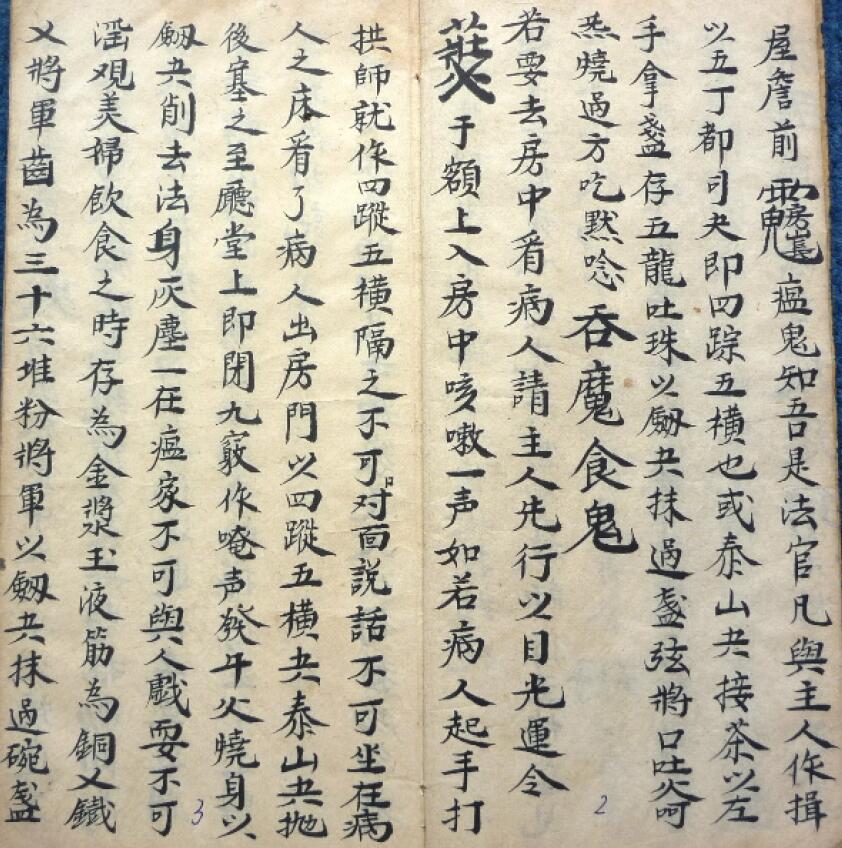 屋詹前瘟鬼知吾是法官凡與主人作揖
以五丁都司夬即四踪五橫也或泰山夬接茶以左
手拿盞存五龍吐珠以劔夬抹過盞弦將口吐火呵
炁燒過方吃默唸吞魔食鬼
若要去房中看病人請主人先行以目光運令
于額上入房中咳嗽一声如若病人起手打
2
拱師就作四蹤五橫隔之不可对面説話不可坐在病
人之床看了病人出房門以四蹤五橫夬泰山夬抛
後塞之至廳堂上即閉九竅作唵声發午火燒身以
劔夬削去法身灰塵一在瘟家不可與人戲耍不可
滛观美婦飲食之時存為金漿玉液筋為銅乂鐵
乂將軍齒為三十六堆粉將軍以劔夬抹過碗盞
3